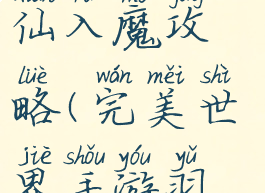 仙入魔攻
lüè wán měi shì
略(完美世
jiè shǒu yóu yǔ
界手游羽